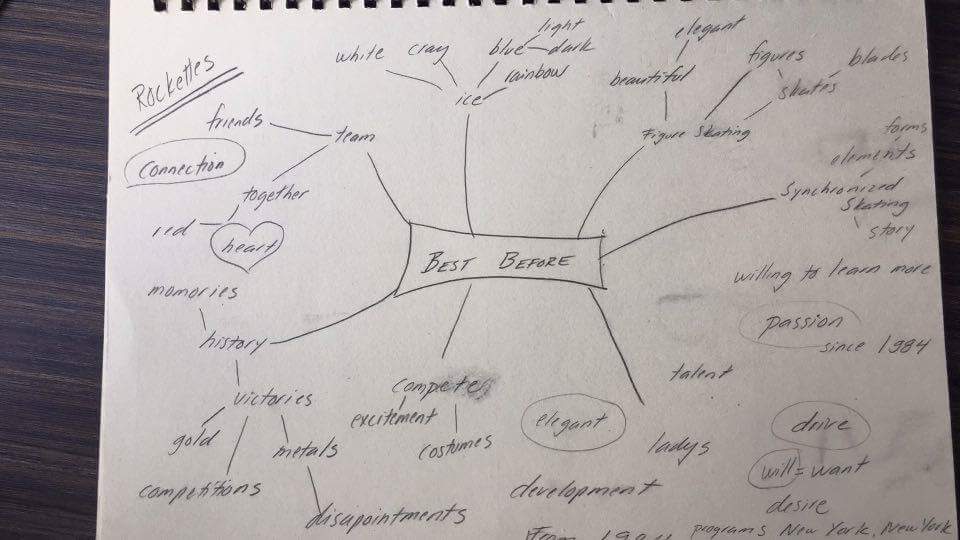 Rockettes
white cray blue light
dark
rainbow
ice
elegant
beautiful
figures
skates
blades
Figure Skating
friends
team
connection
together
red
heart
memories
history
victories
gold
metals
competitions
disapointments
BEST BEFORE
forms
elements
Synchronized
Skating
story
willing to learn more
passion
since 1984
talent
compete
excitement
costumes
elegant
ladys
drive
will = want
desire
development
programs New York, New York